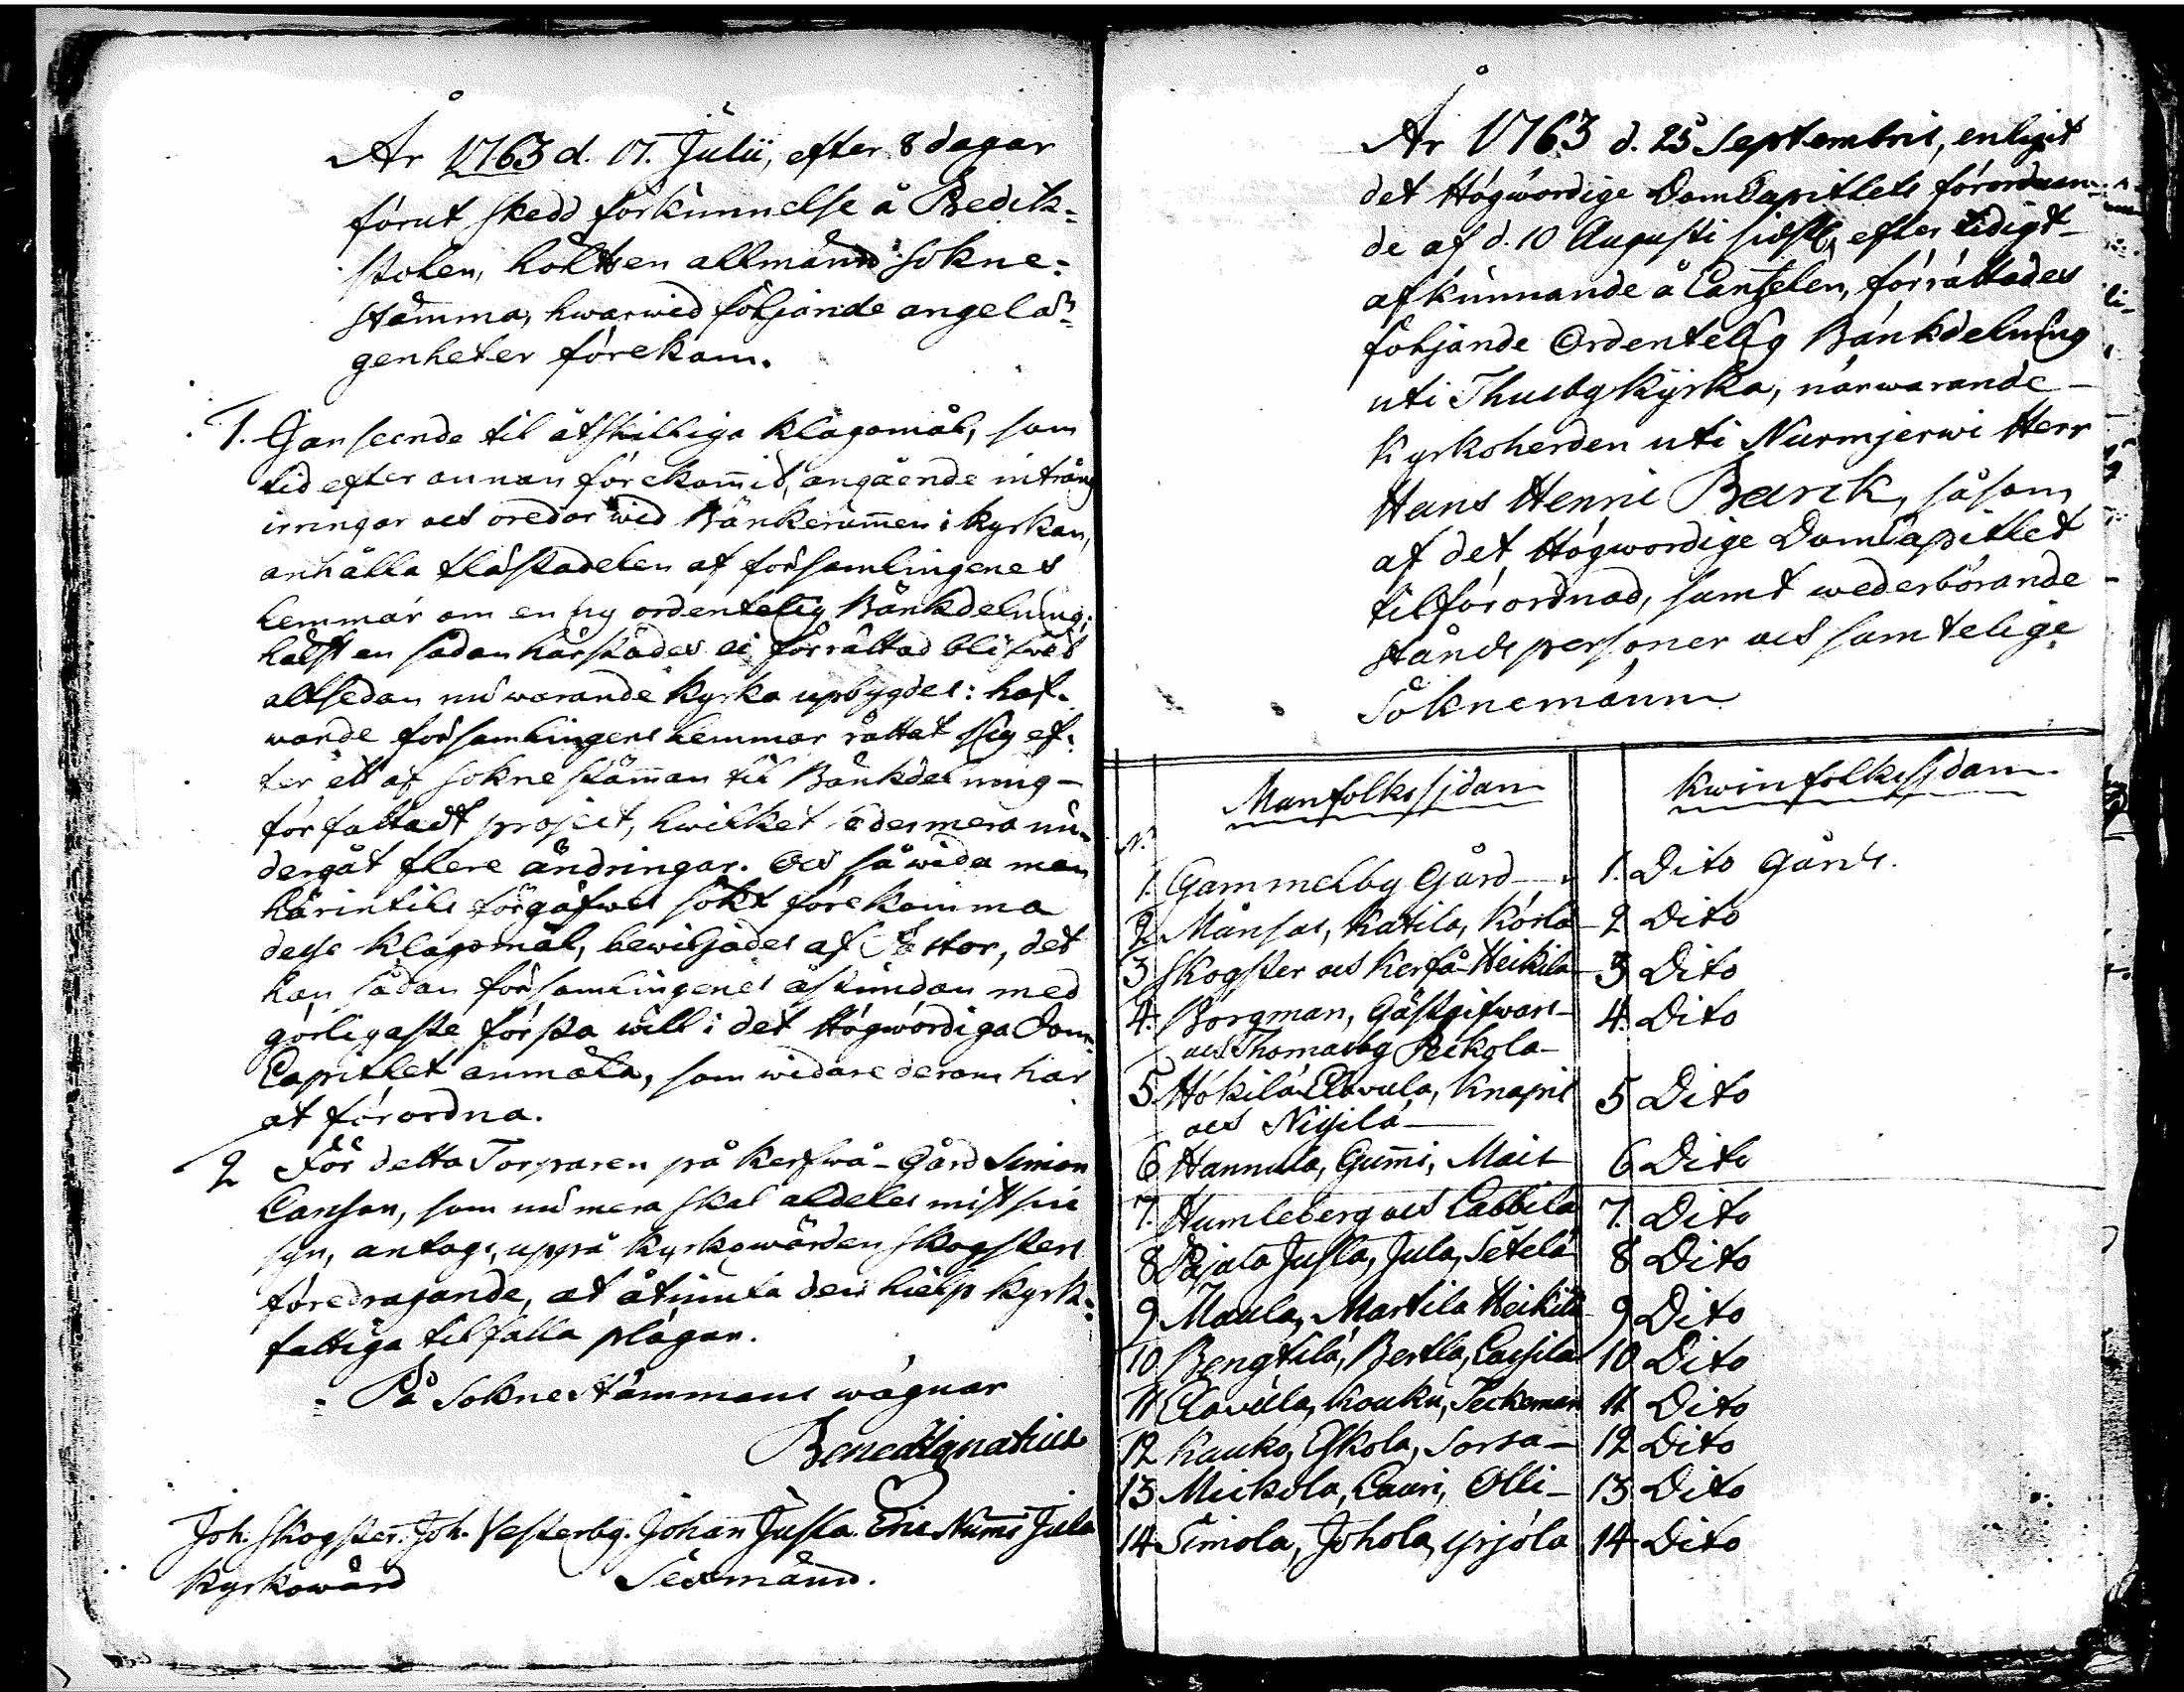 År 1763 d. 17. Julii, efter 8 dagar
förut skedd förkunnelse å Predik=
stolen, höltts en allmänn Sokne=
stämma, hwarwid följande angelä=
genheter förekom.
1. I anseende til åtskilliga klagomål, som
tid efter annan förekom̅it, angående intrång
irringar och oredor wid Bänkerum̅en i kyrkan,
anhålla flästadelen af församlingenes
lemmar om en ny ordentelig Bänkdelning;
hälst en sådan härstädes ei förrättad blifwit
altsedan nuwarande kyrka upbygdes: haf-
wande församlingens lemmar rättat sig ef-
ter ett af sokne stäm̅an til Bänkdelning
författadt project, hwilket sedermera un-
dergåt flere ändringar. Och såwida man
härintils förgäfwes sökt förekomma
desse klagomål, bewiljades af Pastor, det
han sådan församlingenes åstundan med
görligaste första will i det Högwördiga Dom-
Capitlet anmäla, som widare derom har
at förordna.
2 För detta Torparen på Kerfwå-Gård Simon
Carlson, som nu mera skal aldeles mist sin
syn, antogs, uppå kyrkowärden Skogsters
föredragande, at åtniuta den hielp kyrk-
fattiga tilfalla plägar.
På Sokne Stämmans wägnar
Bened: Ignatius
Joh. Skogster. Joh. Vesterbg. Johan Jusla. Eric Num̅i Jula
Kyrkowärd Sexmänn.
År 1763 d. 25 Septembris, enligit
det Högwördige DomCapitlets förordnan-
de af d. 10 Augusti sidste, efter tidigt
afkunnande å Cantzelen, förrättades
följande Ordentelig Bänkdelning
uti Thusby Kyrka, närwarande
Kyrkoherden uti Nurmjerwi Herr
Hans Henric Barck, såsom
af det Högwördige DomCapitlet
tilförordnad, samt wederbörande
Ståndspersoner och samtelige
Soknemänn
Manfolks sjdan Kwinfolks sjdan
N:
1. Gammelby Gård 1. Dito Gårds.
2 Månsas, Katila, Körlä 2 Dito
3 Skogster och Kerfå Heikilä 3 Dito
4. Borgman, Gästgifwars 4. Dito
och Thomasby Peckola
5 Hökilä Clavula, Knapis 5 Dito
och Nisilä
6 Hannula, Gum̅i, Mais 6 Dito
7. Humleberg och Cabbila 7. Dito
8 Pajala Jusla, Jula, Setelä 8 Dito
9 Maula, Martila Heikilä 9 Dito
10 Bengtilä, Bertla, Caisila 10 Dito
11 Clavula, Kouku, Teckeman 11 Dito
12 Kauko, Eskola, Sorsa 12 Dito
13 Mickola, Lauri, Olli 13 Dito
14 Simola, Johola, Yrjölä 14 Dito